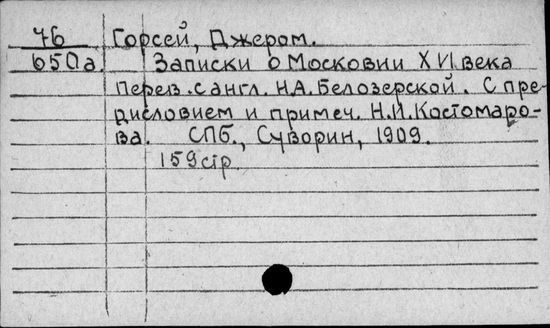 76 Горсей, Джером.
650а. Записки о Московии XVI века
Перев. с англ. Н.А. Белозерской. С пре-
дисловием и примеч. Н.И. Костомаро-
ва. СПб., Суворин, 1909.
159стр.